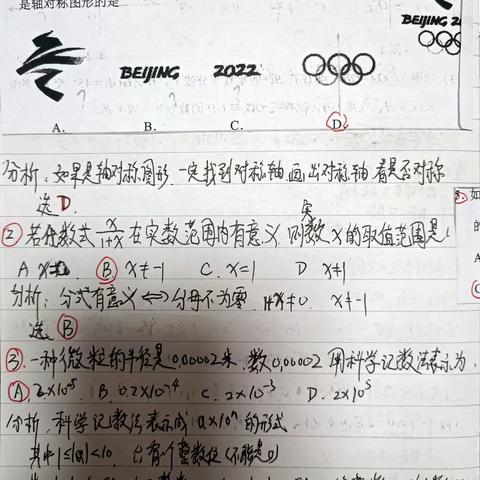 是轴对称图形的是
BEIJING 2022
BEIJING 2
A. B. C. D.
分析：如果是轴对称图形，一定找到对称轴，画出对称轴，看是否对称
选D.
② 若分式 x/1+x 在实数范围内有意义，则实数x的取值范围是(
A B x≠-1 C. x=1 D x≠1
分析：分式有意义⟺分母不为零. 1+x≠0. x≠-1
选 B
③. 一种微粒的半径是0.00002米，数0.00002用科学记数法表示为
A 2×10⁻⁵ B. 0.2×10⁻⁴ C. 2×10⁻³ D. 2×10⁵
分析，科学记数法表示成 a×10ⁿ 的形式.
其中1≤|a|<10, 只有1个整数位(不能是0)
如
的
A